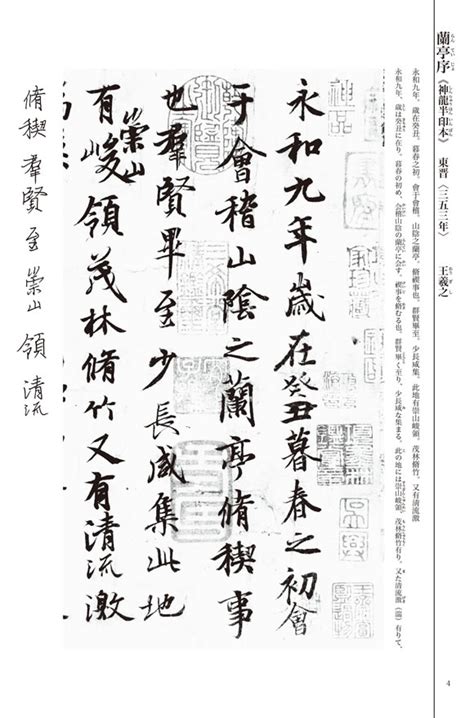 蘭亭序《神龍半印本》 東晋〈三五三年〉 王羲之
永和九年。歳在癸丑。暮春之初。會于會稽。山陰之蘭亭。脩禊事也。群賢畢至。少長咸集。此地有崇山峻領。茂林脩竹。又有清流激
永和九年、歳は癸丑に在り。暮春の初め、会稽山陰の蘭亭に会す。禊事を脩むる也。群賢畢く至り、少長咸な集まる。此の地には崇山峻領、茂林脩竹有り。又た清流激（湍）有りて、
永和九年歳在癸丑暮春之初會
于會稽山陰之蘭亭脩禊事
也羣賢畢至少長咸集此地
有崇山峻領茂林脩竹又有清流激
脩 禊 羣 賢 至 崇 領 清流
4